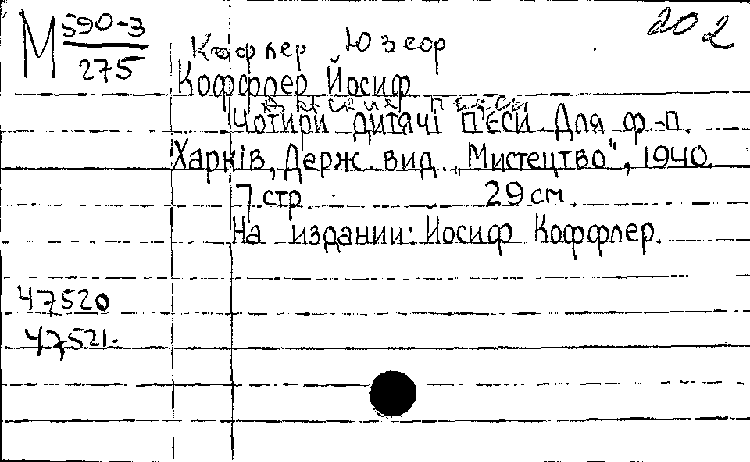 М 590-3
275
202
Кофлер Юзеф
Коффлер Йосиф
Чотири дитячі п'єси. Для ф-п.
Харків, Держ. вид. „Мистецтво", 1940.
7 стр. 29 см.
На издании: Йосиф Коффлер.
47520
47521.